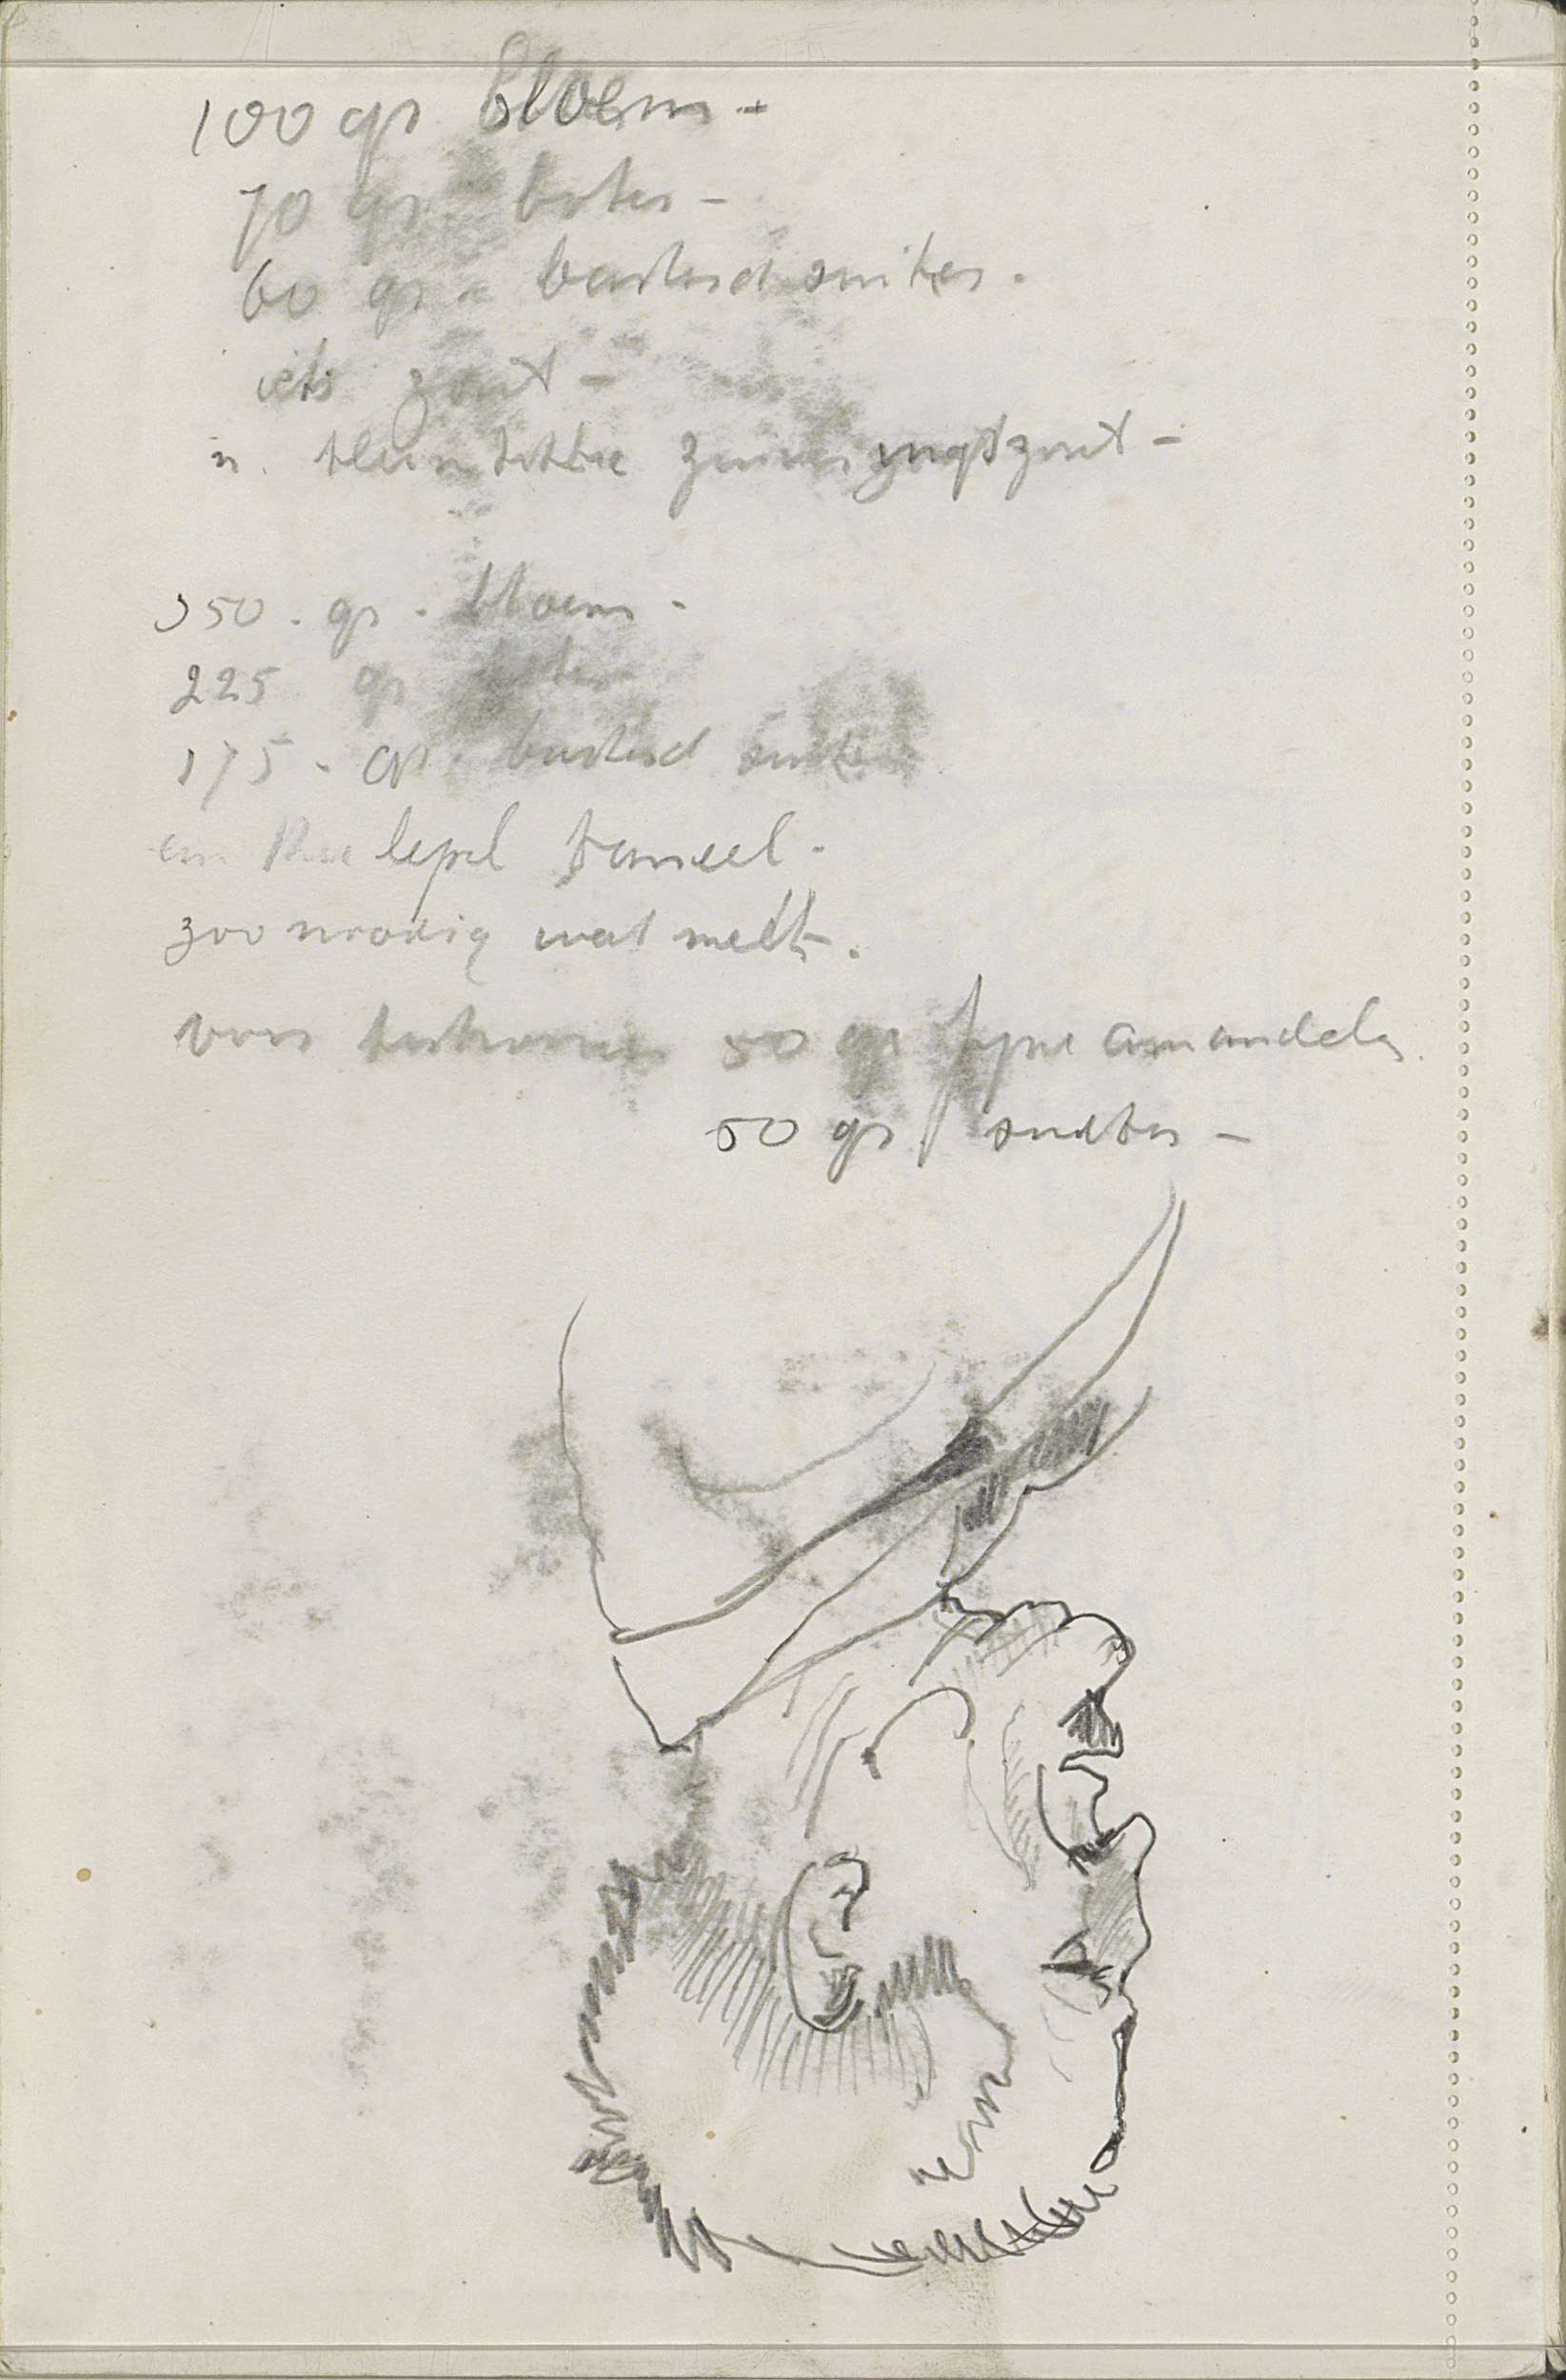 100 gr. Bloem -
70 gr. boter -
60 gr. basterdsuiker.
iets zout -
n. klein zuiveringszout -
350. gr. bloem.
225 gr boter
175. gr. basterd suiker
een thee lepel kaneel.
zoo noodig wat melk.
voor 50 gr fyne amandelen.
50 gr suiker -